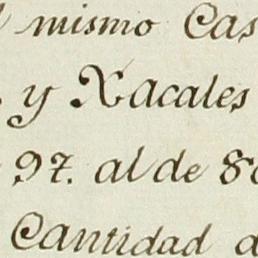 mismo Cas
y Xacales
97. al de 8
Cantidad d